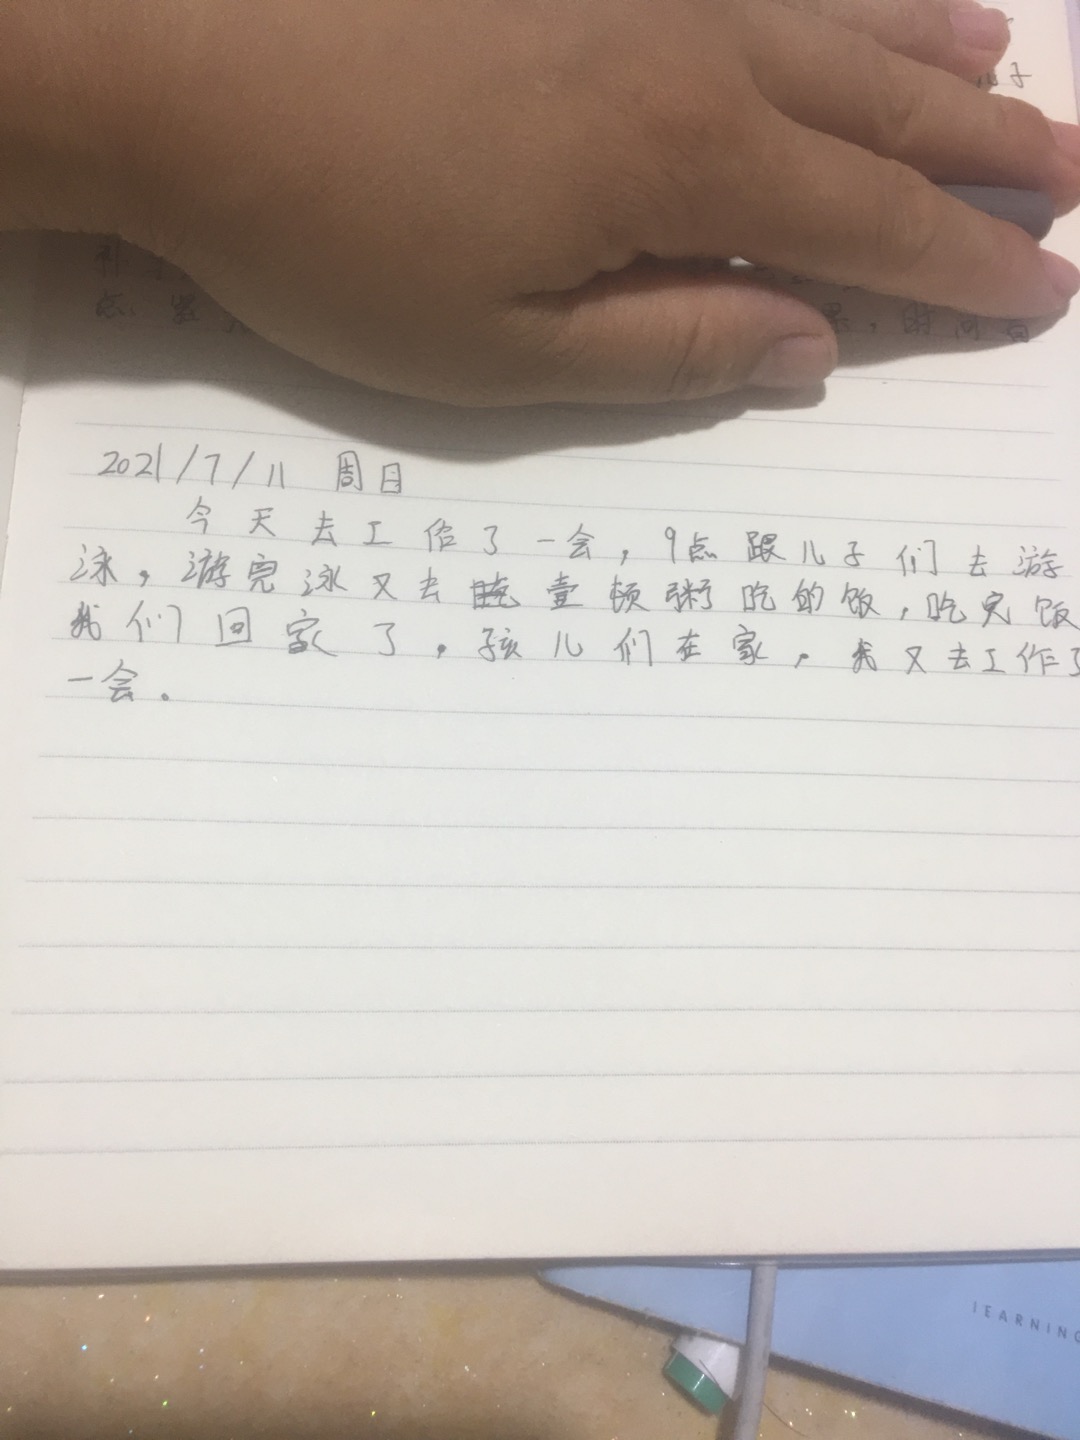 儿子
补
点
果,时间
2021/7/11 周日
今天去工作了一会,9点跟儿子们去游
泳,游完泳又去 壹顿粥吃的饭,吃完饭
我们回家了,孩儿们在家,我又去工作了
一会。
LEARNING